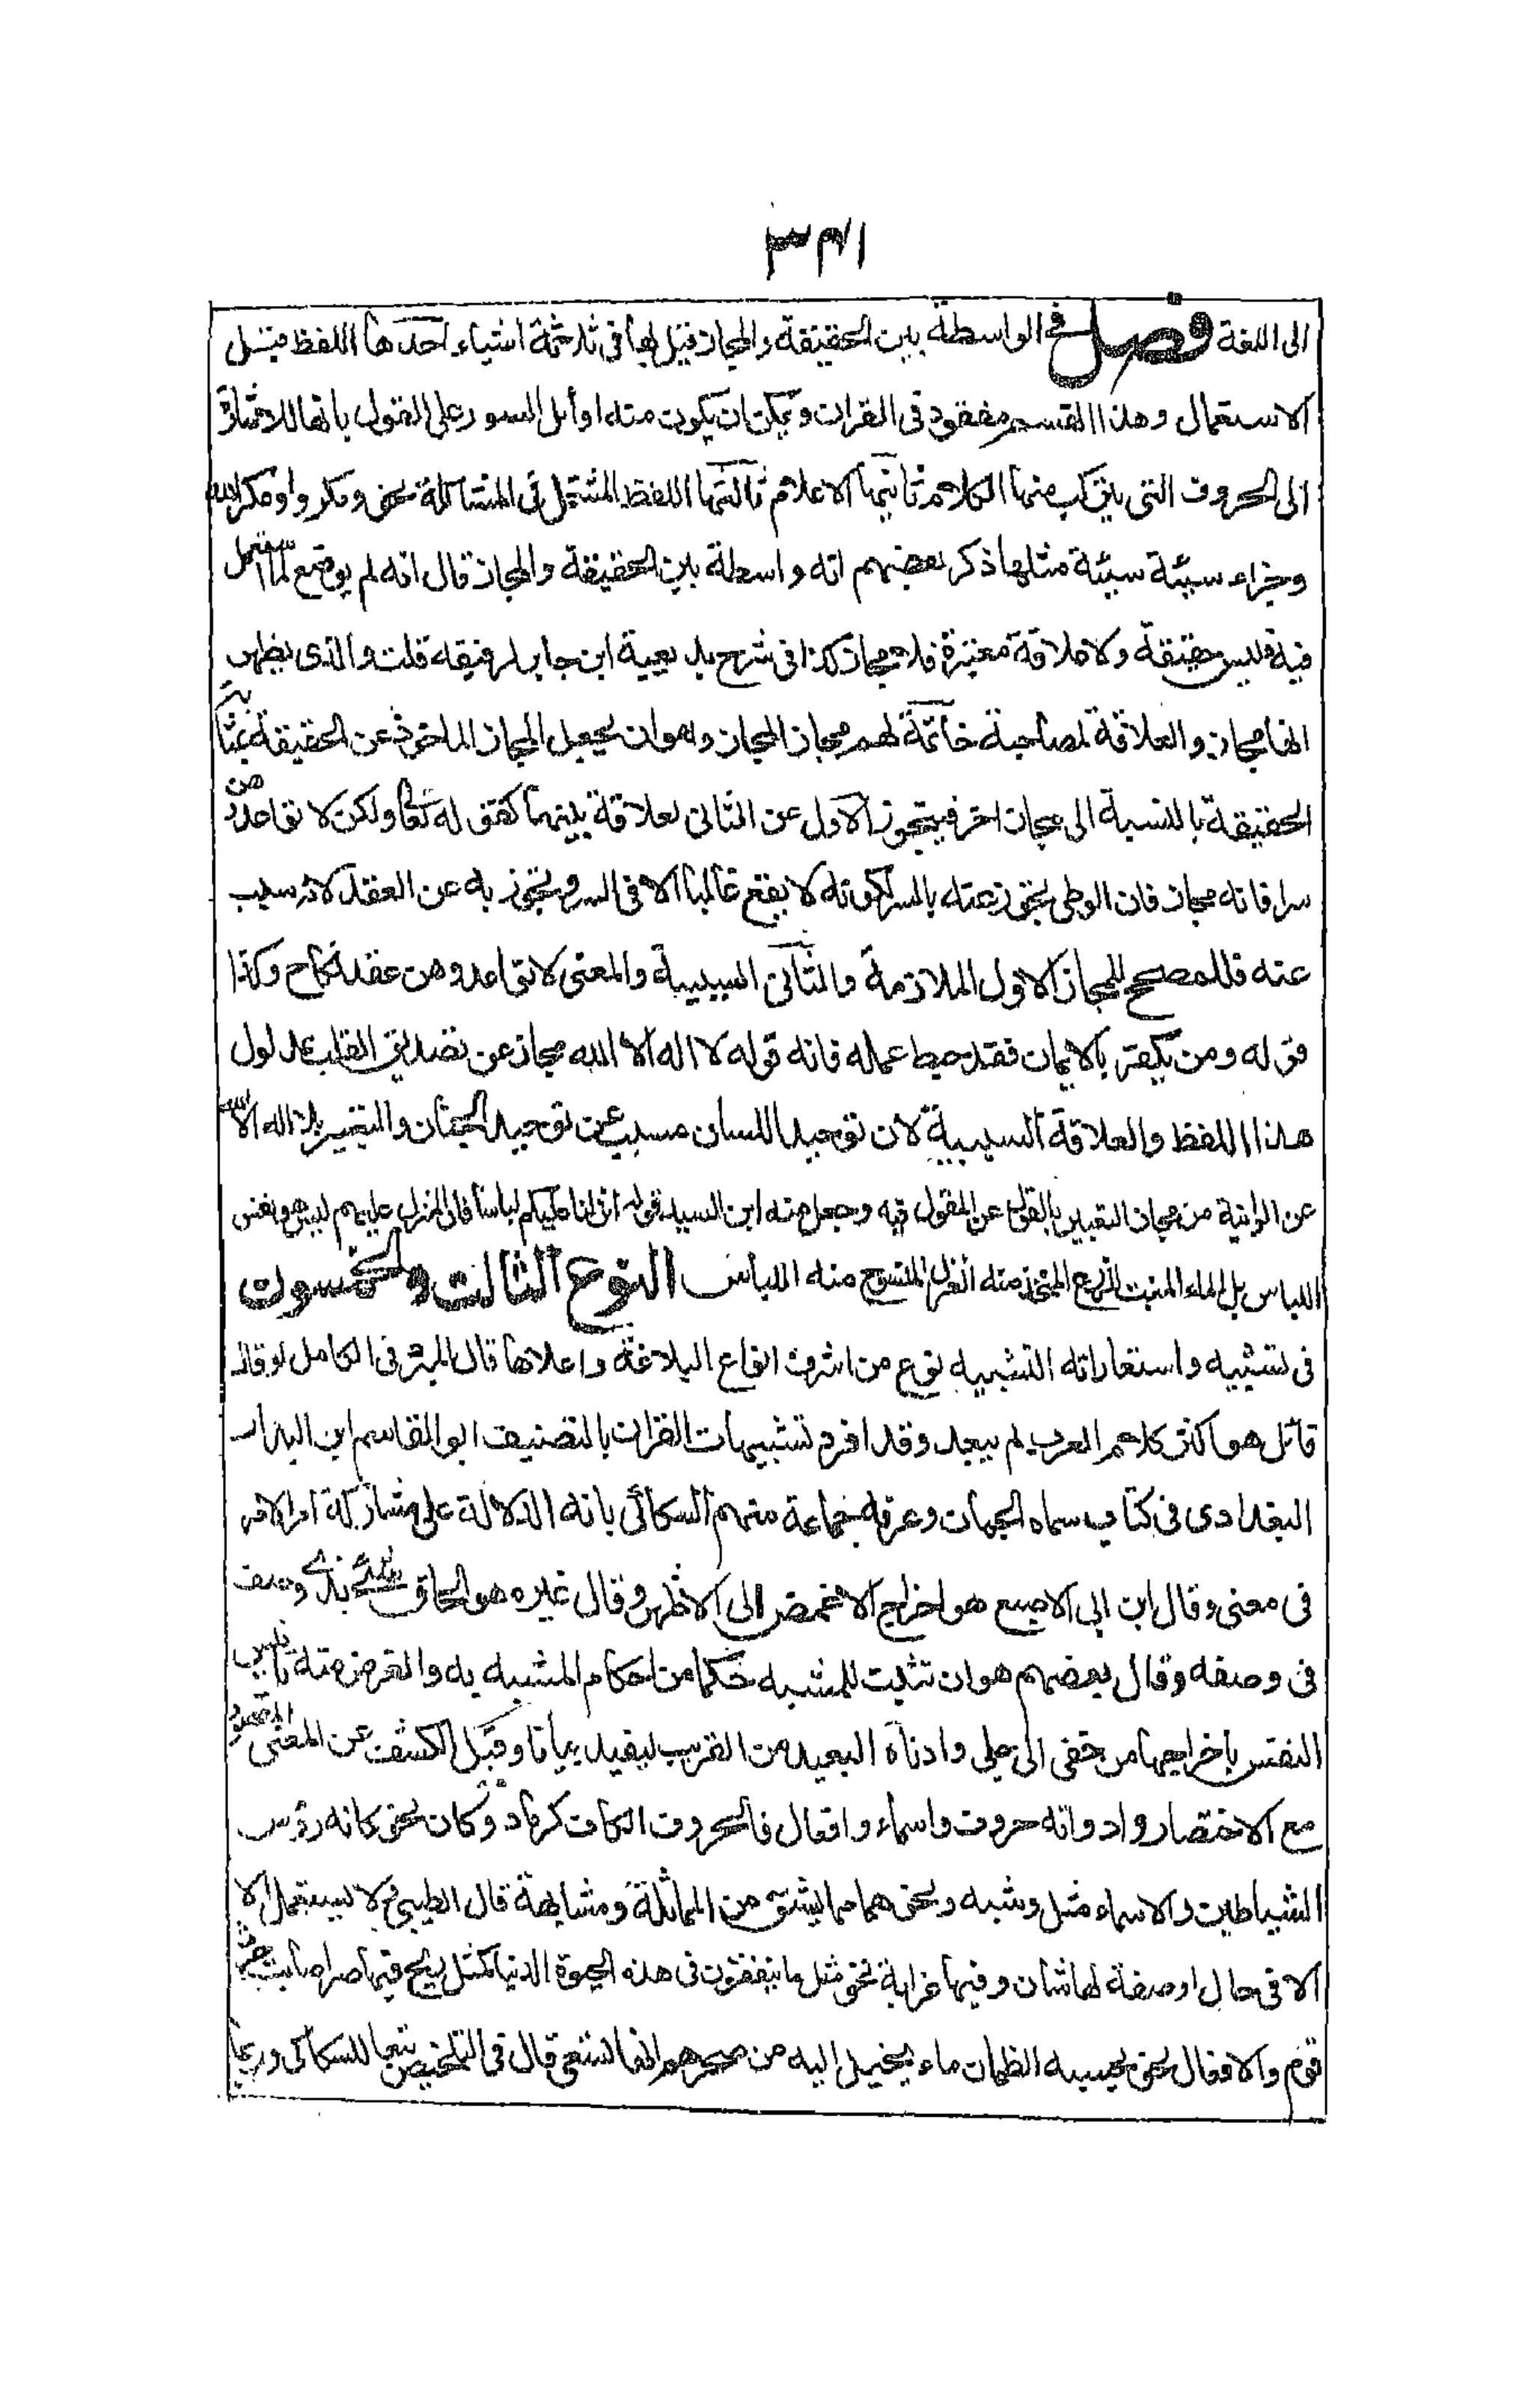 ٣٨١
الى اللغة فصل فى الواسطة بين الحقيقة والمجاز قيل بها فى ثلاثة اشياء احدها اللفظ قبل
الاستعمال وهذا القسم مفقود فى القران ويمكن ان يكون منه اوائل السور على القول بانها للاشارة
الى الحروف التى يتركب منها الكلام ثانيها الاعلام ثالثها اللفظ المستعمل فى المشاكلة نحو ومكروا ومكر الله
وجزاء سيئة سيئة مثلها ذكر بعضهم انه واسطة بين الحقيقة والمجاز قال انه لم يوضع لما استعمل
فيه فليس حقيقة ولا علاقة معتبرة فلا مجاز كذا فى شرح بديعية ابن جابر لرفيقه قلت والذى يظهر
انها مجاز والعلاقة المصاحبة خاتمة لهم مجاز المجاز وهو ان يجعل المجاز الماخوذ عن الحقيقة بمثابة
الحقيقة بالنسبة الى مجاز اخر فيتجوز الاول عن الثانى لعلاقة بينهما كقوله تعا ولكن لا تواعدوهن
سرا فانه مجاز فان الوطى تجوز عنه بالسر لكونه لا يقع غالبا الا فى السر وتجوز به عن العقد لانه سبب
عنه فالمصحح للمجاز الاول الملازمة والثانى السببية والمعنى لا تواعدوهن عقد نكاح وكذا
قوله ومن يكفر بالايمان فقد حبط عمله فانه قوله لا اله الا الله مجاز عن تصديق القلب بمدلول
هذا اللفظ والعلاقة السببية لان توحيد اللسان مسبب عن توحيد الجنان والتعبير بلا اله الا الله
عن الوانية من مجاز التعبير بالقول عن المقول فيه وجعل منه ابن السيد قوله انزلنا عليكم لباسا فان المنزل عليهم ليس هو نفس
اللباس بل الماء المنبت للزرع المتخذ منه الغزل المنسوج منه اللباس النوع الثالث والخمسون
فى تشبيه واستعاراته التشبيه نوع من اشرف انواع البلاغة واعلاها قال المبرد فى الكامل لو قال
قائل هو اكثر كلام العرب لم يبعد وقد افرد تشبيهات القران بالتصنيف ابو القاسم ابن البندار
البغدادى فى كتاب سماه الجمان وعرفه جماعة منهم السكاكى بانه الدلالة على مشاركة امر لامر
فى معنى وقال ابن ابى الاصبع هو اخراج الاغمض الى الاظهر وقال غيره هو الحاق شئ بذى وصف
فى وصفه وقال بعضهم هو ان تثبت للمشبه حكما من احكام المشبه به والغرض منه تانيس
النفس باخراجها من خفى الى جلى وادناۤه البعيد من القريب ليفيد بيانا وقيل الكشف عن المعنى المقصود
مع الاختصار وادواته حروف واسماء وافعال فالحروف الكاف كرماد وكان نحو كانه رؤس
الشياطين والاسماء مثل وشبه ونحوهما مما يشتق من المماثلة ومشابهة قال الطيبى ولا يستعمل الا
الا فى حال او صفة لها شان وفيها غرابة نحو مثل ما ينفقون فى هذه الحيوة الدنيا كمثل ريح فيها صر اصابت حرث
قوم والافعال نحو يحسبه الظمان ماء يخيل اليه من سحرهم انها تسعى قال فى التلخيص تبعا للسكاكى وربما